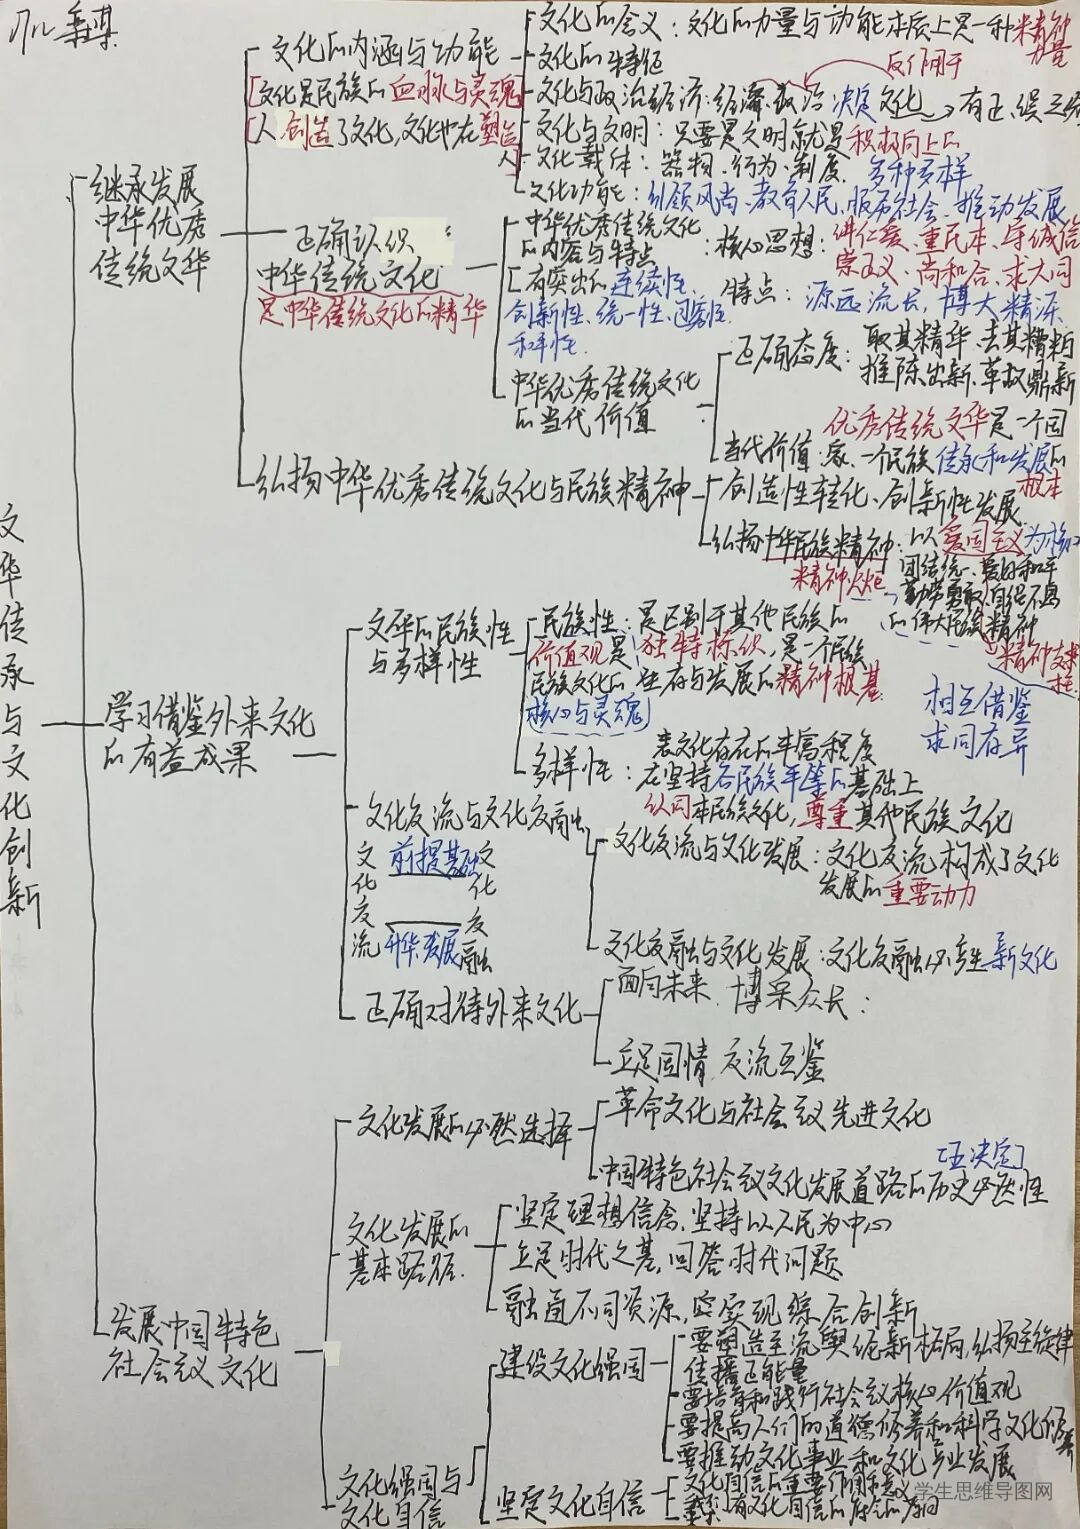 文华传承与文化创新
继承发展
中华优秀
传统文华
文化的内涵与功能
[文化是民族的血脉与灵魂
[人创造了文化,文化也在塑造
人
文化的含义:文化的力量与功能本质上是一种精神
力量
文化的特征
反作用于
文化与政治经济:经济、政治决定文化
文化与文明:只要是文明就是积极向上的
文化载体:器物、行为、制度. 多种多样
文化功能:引领风尚、教育人民,服务社会、推动发展
正确认识
中华传统文化
是中华传统文化的精华
中华优秀传统文化
的内容与特点
[有突出的连续性、
创新性、统一性、包容性.
和平性.
:核心思想:讲仁爱、重民本、守诚信
崇正义、尚和合、求大同
特点:源远流长,博大精深
中华优秀传统文化
的当代价值
正确态度:取其精华、去其糟粕
推陈出新、革故鼎新
优秀传统文华是一个国
当代价值:家、一个民族传承和发展的
根本
弘扬中华优秀传统文化与民族精神
创造性转化、创新性发展
弘扬中华民族精神:以爱国主义为核心
精神火炬
团结统一、爱好和平
勤劳勇敢,自强不息
的伟大民族精神
精神支柱
学习借鉴外来文化
的有益成果
文华的民族性
与多样性
民族性:是区别于其他民族的
价值观是
独特标识,是一个民族
民族文化的
生存与发展的精神根基
核心与灵魂
相互借鉴
求同存异
表文化存在的丰富程度
多样性:在坚持各民族平等的基础上
认同本民族文化,尊重其他民族文化
文化交流与文化交融
文化交流
前提基础
升华发展
文化交融
文化交流与文化发展:文化交流构成了文化
发展的重要动力
文化交融与文化发展:文化交融必产生新文化
正确对待外来文化
面向未来 博采众长:
立足国情 交流互鉴
发展中国特色
社会主义文化
文化发展的必然选择
革命文化与社会主义先进文化
[五决定]
中国特色社会主义文化发展道路的历史必然性
文化发展的
基本路径.
坚定理想信念.坚持以人民为中心
立足时代之基,回答时代问题
融通不同资源,实现综合创新
文化强国与
文化自信
建设文化强国
要塑造主流舆论新格局,弘扬主旋律
传播正能量
要培育和践行社会主义核心价值观
要提高人们的道德修养和科学文化修养
要推动文化事业和文化产业发展
坚定文化自信
文化自信的重要作用和意义
学生思维导图网